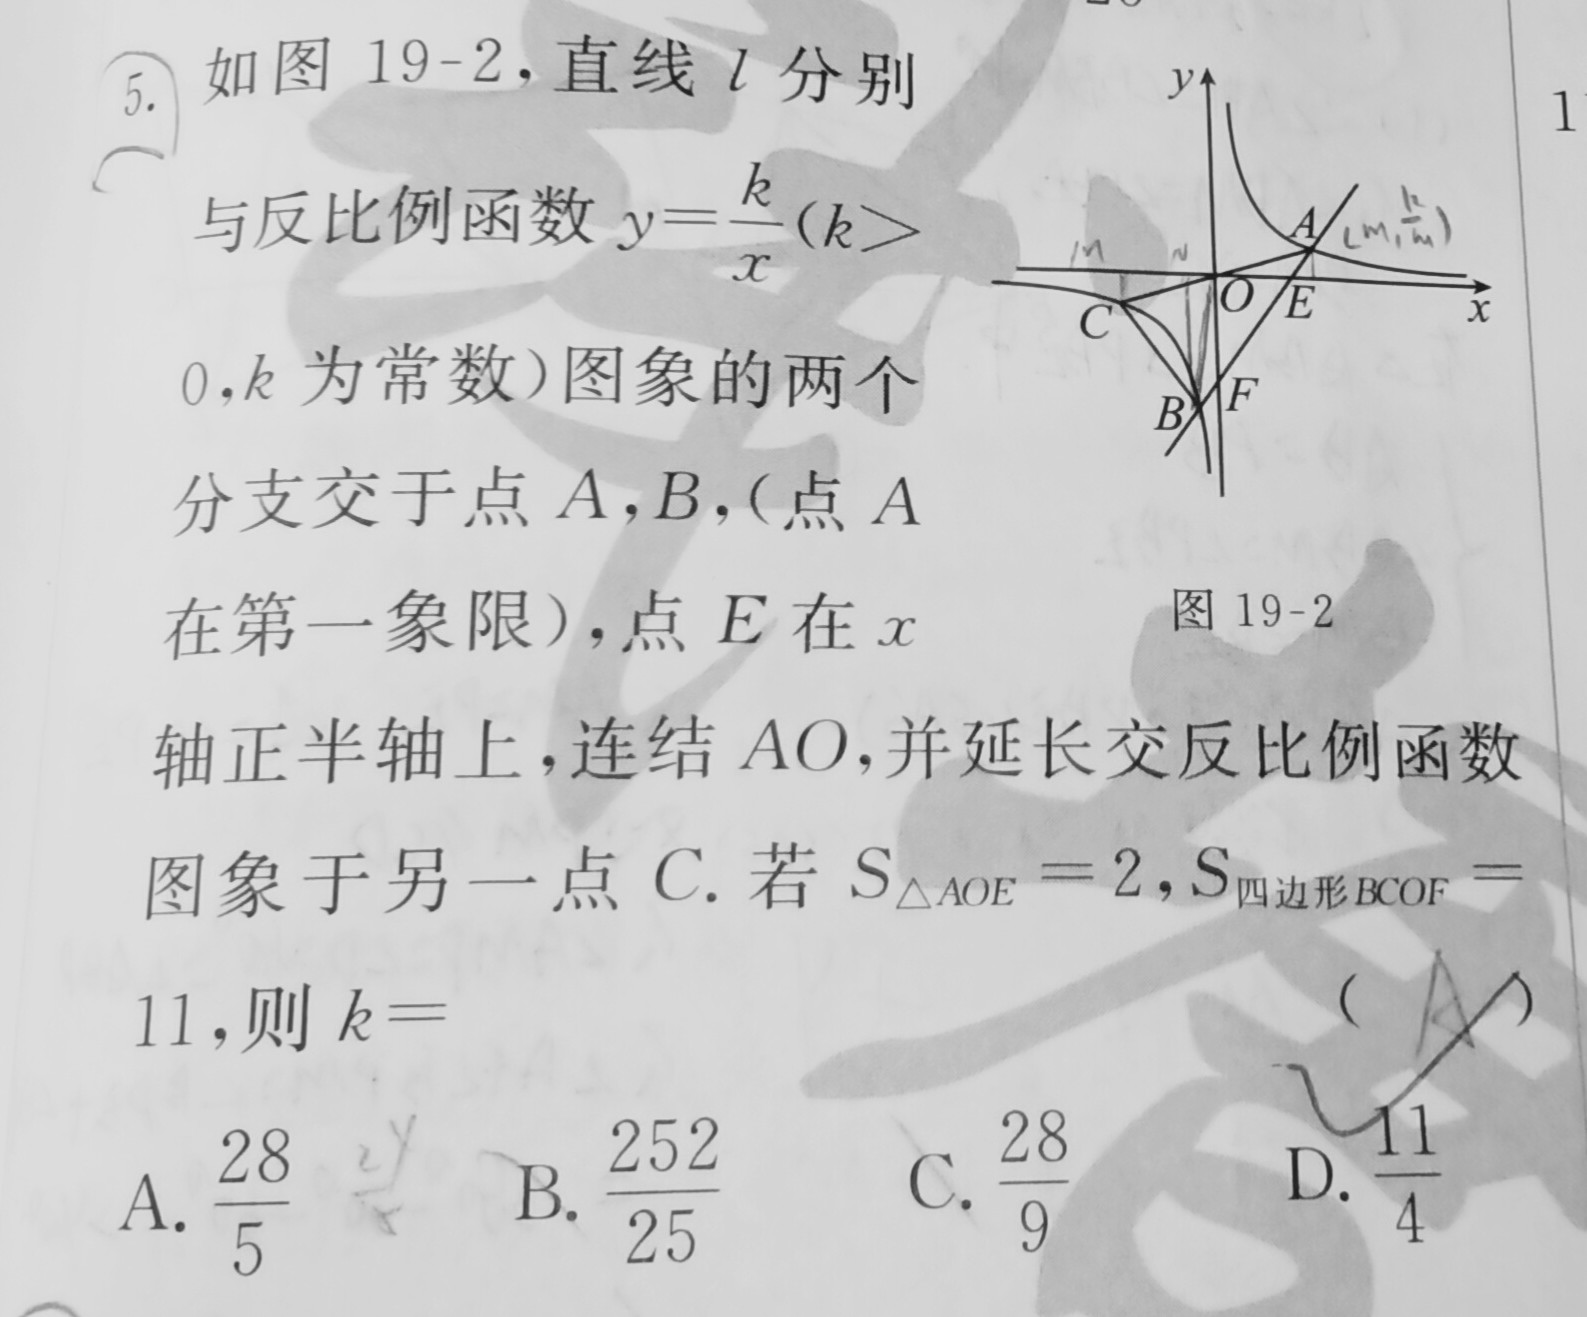 5. 如图 19-2,直线 l 分别
与反比例函数 y=k/x(k>
0,k 为常数)图象的两个
分支交于点 A,B,(点 A
在第一象限),点 E 在 x
轴正半轴上,连结 AO,并延长交反比例函数
图象于另一点 C. 若 S△AOE=2,S四边形BCOF=
11,则 k= ( A )
A. 28/5 B. 252/25 C. 28/9 D. 11/4
y
A (m, k/m)
M N
O E x
C
B F
图 19-2
1